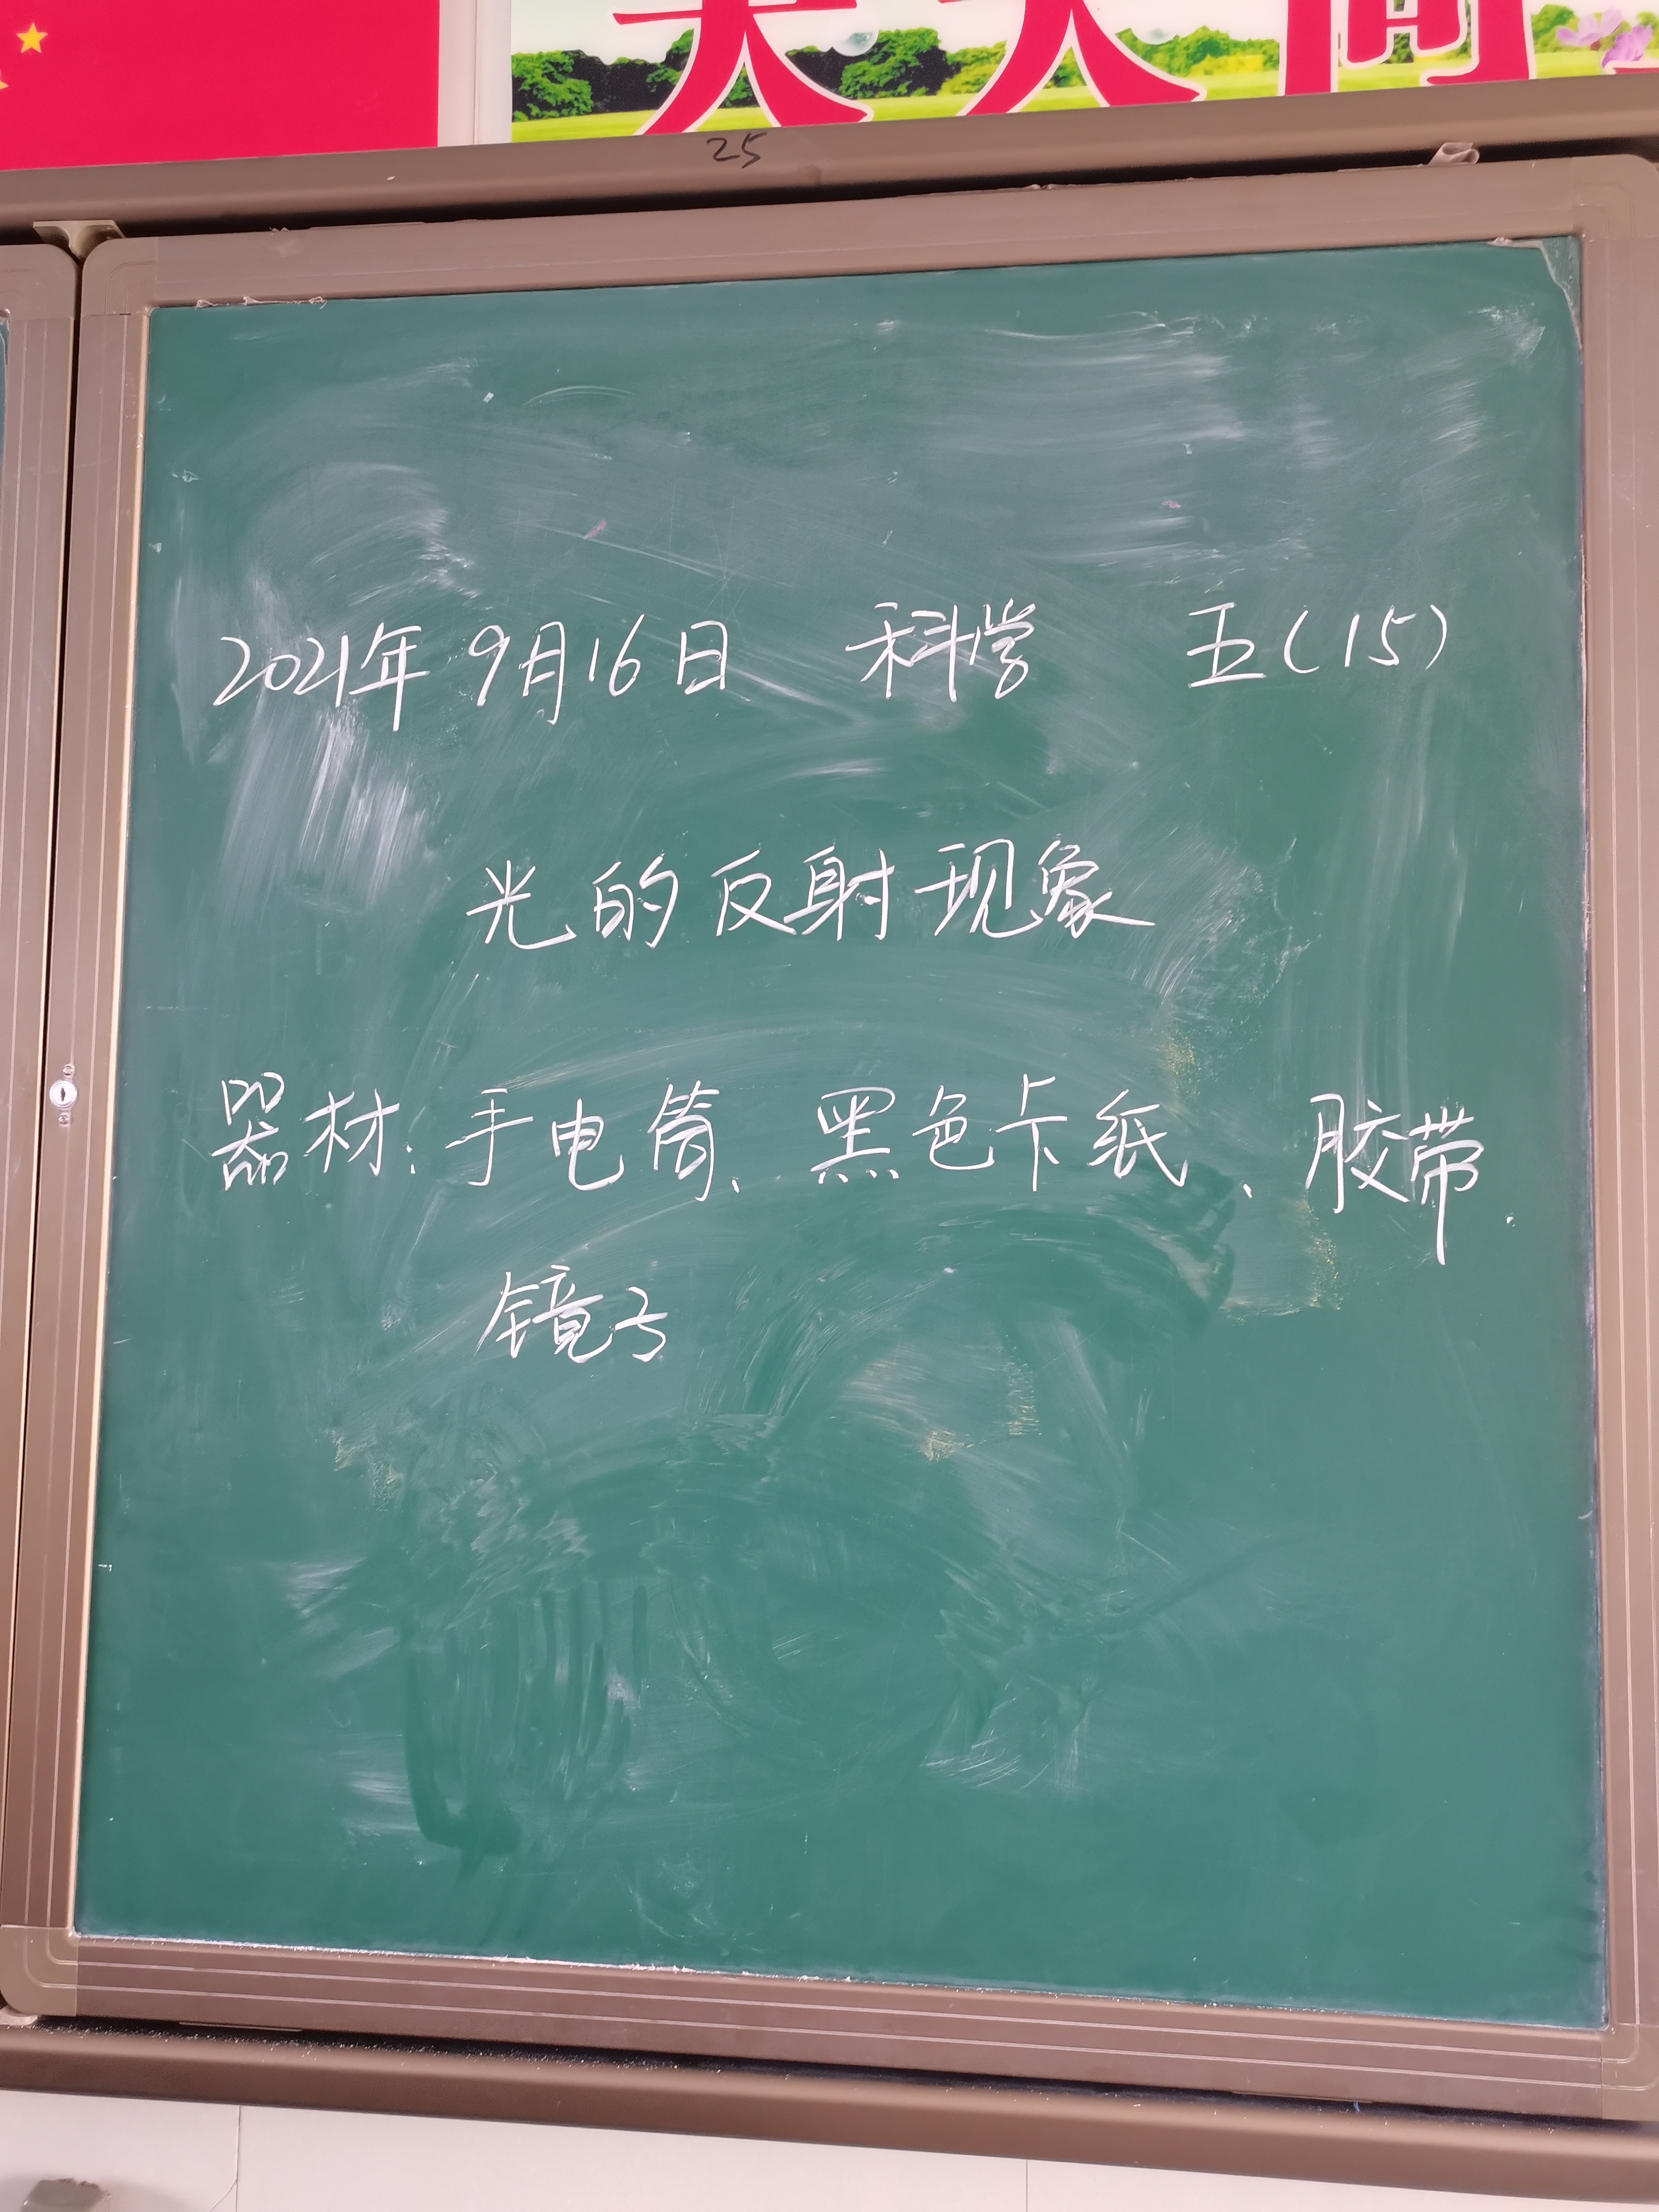 天天向
25
2021年9月16日 科学 五(15)
光的反射现象
器材:手电筒、黑色卡纸、胶带.
镜子